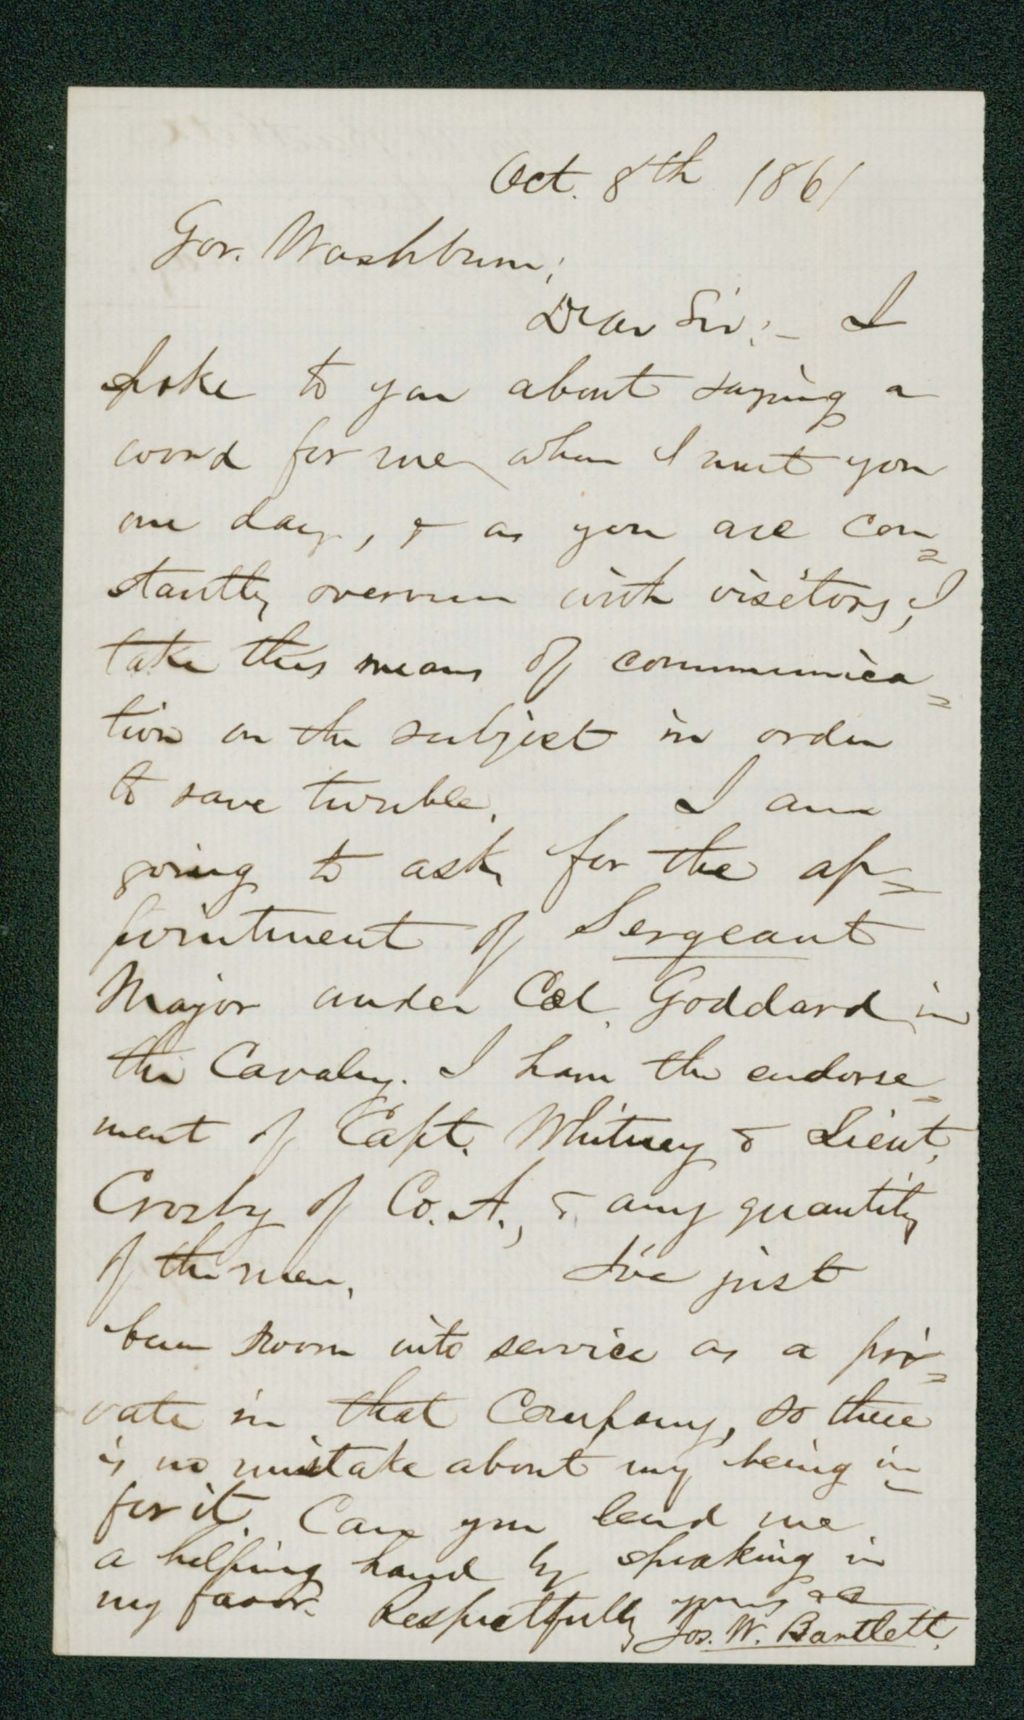 Oct. 8th 1861
Gov. Washburn;
Dear Sir:- I
spoke to you about saying a
word for me when I met you
one day, & as you are con=
stantly overrun with visitors, I
take this means of communica=
tion on the subject in order
to save trouble. I am
going to ask for the ap=
pointment of Sergeant
Major under Col. Goddard in
the Cavalry. I have the endorse=
ment of Capt. Whitney & Lieut.
Crosby of Co. A., & any quantity
of the men. I've just
been sworn into service as a pri=
vate in that Company, so there
is no mistake about my being in
for it. Can you lend me
a helping hand by speaking in
my favor. Respectfully yours
Jos. W. Bartlett.